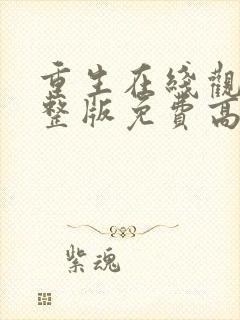 重生在綫觀
整版免費高
紫魂